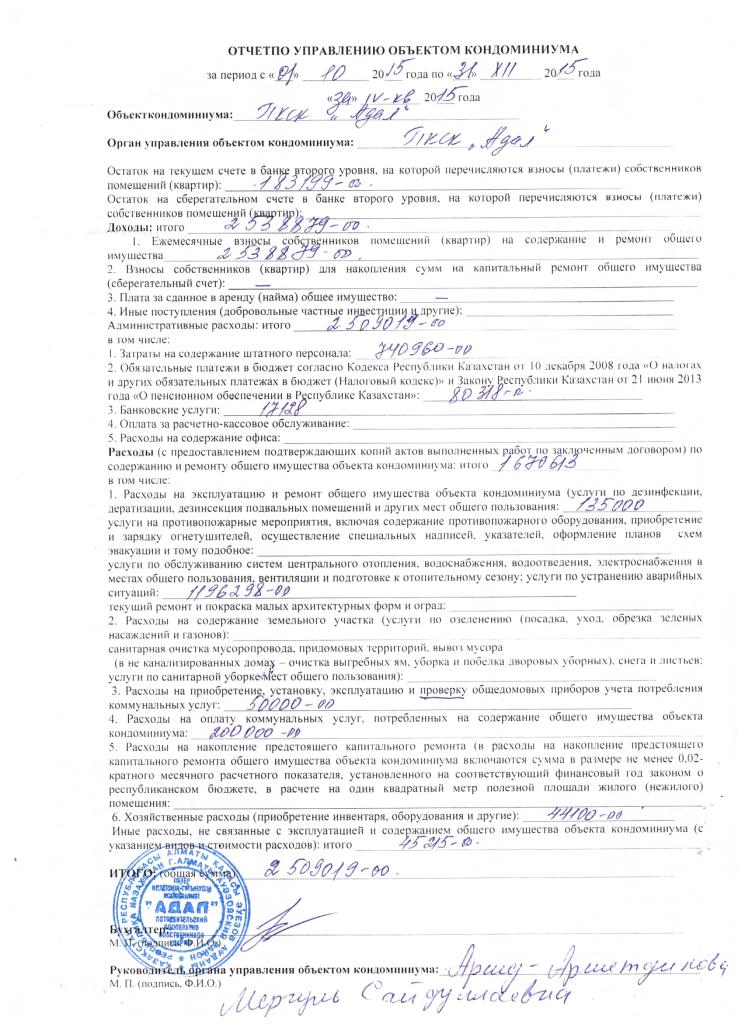 ОТЧЕТПО УПРАВЛЕНИЮ ОБЪЕКТОМ КОНДОМИНИУМА
за период с «01» 10 2015 года по «31» XII 2015 года
«за» IV-кв 2015 года
Объекткондоминиума: ПКСК "Адал"
Орган управления объектом кондоминиума: ПКСК „Адал"
Остаток на текущем счете в банке второго уровня, на которой перечисляются взносы (платежи) собственников
помещений (квартир): 183199-00.
Остаток на сберегательном счете в банке второго уровня, на которой перечисляются взносы (платежи)
собственников помещений (квартир):
Доходы: итого 2538879-00.
1. Ежемесячные взносы собственников помещений (квартир) на содержание и ремонт общего
имущества 2538879-00.
2. Взносы собственников (квартир) для накопления сумм на капитальный ремонт общего имущества
(сберегательный счет): —
3. Плата за сданное в аренду (найма) общее имущество: —
4. Иные поступления (добровольные частные инвестиции и другие):
Административные расходы: итого 2509019-00
в том числе:
1. Затраты на содержание штатного персонала: 740960-00
2. Обязательные платежи в бюджет согласно Кодекса Республики Казахстан от 10 декабря 2008 года «О налогах
и других обязательных платежах в бюджет (Налоговый кодекс)» и Закону Республики Казахстан от 21 июня 2013
года «О пенсионном обеспечении в Республике Казахстан»: 80318-00.
3. Банковские услуги: 17128
4. Оплата за расчетно-кассовое обслуживание:
5. Расходы на содержание офиса:
Расходы (с предоставлением подтверждающих копий актов выполненных работ по заключенным договором) по
содержанию и ремонту общего имущества объекта кондоминиума: итого 1670613
в том числе:
1. Расходы на эксплуатацию и ремонт общего имущества объекта кондоминиума (услуги по дезинфекции,
дератизации, дезинсекция подвальных помещений и других мест общего пользования: 135000
услуги на противопожарные мероприятия, включая содержание противопожарного оборудования, приобретение
и зарядку огнетушителей, осуществление специальных надписей, указателей, оформление планов схем
эвакуации и тому подобное:
услуги по обслуживанию систем центрального отопления, водоснабжения, водоотведения, электроснабжения в
местах общего пользования, вентиляции и подготовке к отопительному сезону; услуги по устранению аварийных
ситуаций: 1196298-00
текущий ремонт и покраска малых архитектурных форм и оград:
2. Расходы на содержание земельного участка (услуги по озеленению (посадка, уход, обрезка зеленых
насаждений и газонов):
санитарная очистка мусоропровода, придомовых территорий, вывоз мусора
(в не канализированных домах – очистка выгребных ям, уборка и побелка дворовых уборных), снега и листьев;
услуги по санитарной уборке мест общего пользования):
3. Расходы на приобретение, установку, эксплуатацию и проверку общедомовых приборов учета потребления
коммунальных услуг: 50000-00
4. Расходы на оплату коммунальных услуг, потребленных на содержание общего имущества объекта
кондоминиума: 200000-00
5. Расходы на накопление предстоящего капитального ремонта (в расходы на накопление предстоящего
капитального ремонта общего имущества объекта кондоминиума включаются сумма в размере не менее 0,02-
кратного месячного расчетного показателя, установленного на соответствующий финансовый год законом о
республиканском бюджете, в расчете на один квадратный метр полезной площади жилого (нежилого)
помещения:
6. Хозяйственные расходы (приобретение инвентаря, оборудования и другие): 44100-00
Иные расходы, не связанные с эксплуатацией и содержанием общего имущества объекта кондоминиума (с
указанием видов и стоимости расходов): итого 45215-00.
ИТОГО: (общая сумма) 2509019-00.
"АДАЛ"
ПОТРЕБИТЕЛЬСКИЙ
КООПЕРАТИВ
СОБСТВЕННИКОВ
Бухгалтер:
М. П. (подпись, Ф.И.О.)
Руководитель органа управления объектом кондоминиума:
М. П. (подпись, Ф.И.О.)
Сайдуллаевна